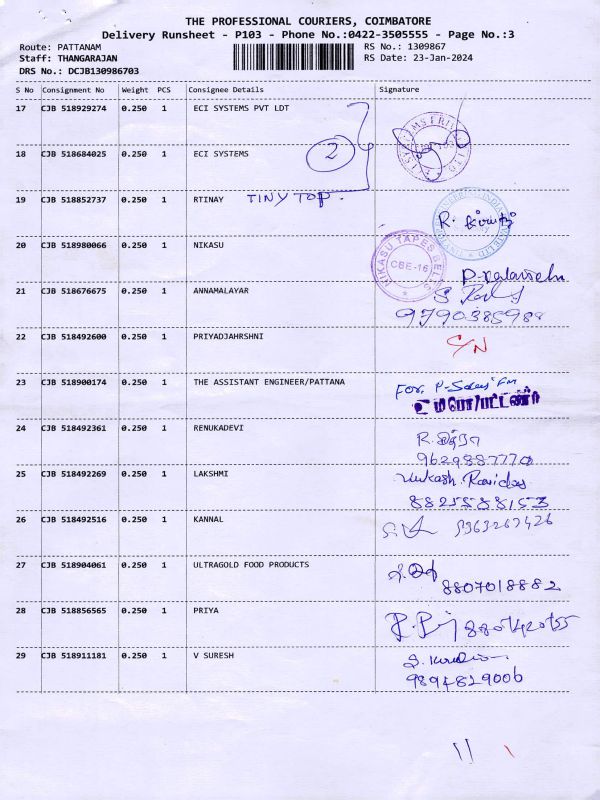 THE PROFESSIONAL COURIERS, COIMBATORE
Delivery Runsheet - P103 - Phone No.:0422-3505555 - Page No.:3
Route: PATTANAM RS No.: 1309867
Staff: THANGARAJAN RS Date: 23-Jan-2024
DRS No.: DCJB130986703
S No Consignment No Weight PCS Consignee Details Signature
17 CJB 518929274 0.250 1 ECI SYSTEMS PVT LDT
18 CJB 518684025 0.250 1 ECI SYSTEMS 2
19 CJB 518852737 0.250 1 RTINAY TINY TOP.
20 CJB 518980066 0.250 1 NIKASU NIKASU TAPES CBE-16
21 CJB 518676675 0.250 1 ANNAMALAYAR
9790385988
22 CJB 518492600 0.250 1 PRIYADJAHRSHNI C/N
23 CJB 518900174 0.250 1 THE ASSISTANT ENGINEER/PATTANA For,
உ மி.பொ/பட்டணம்
24 CJB 518492361 0.250 1 RENUKADEVI
9629887770
25 CJB 518492269 0.250 1 LAKSHMI
8825588153
26 CJB 518492516 0.250 1 KANNAL
27 CJB 518904061 0.250 1 ULTRAGOLD FOOD PRODUCTS
8807018882
28 CJB 518856565 0.250 1 PRIYA
29 CJB 518911181 0.250 1 V SURESH
9894829006